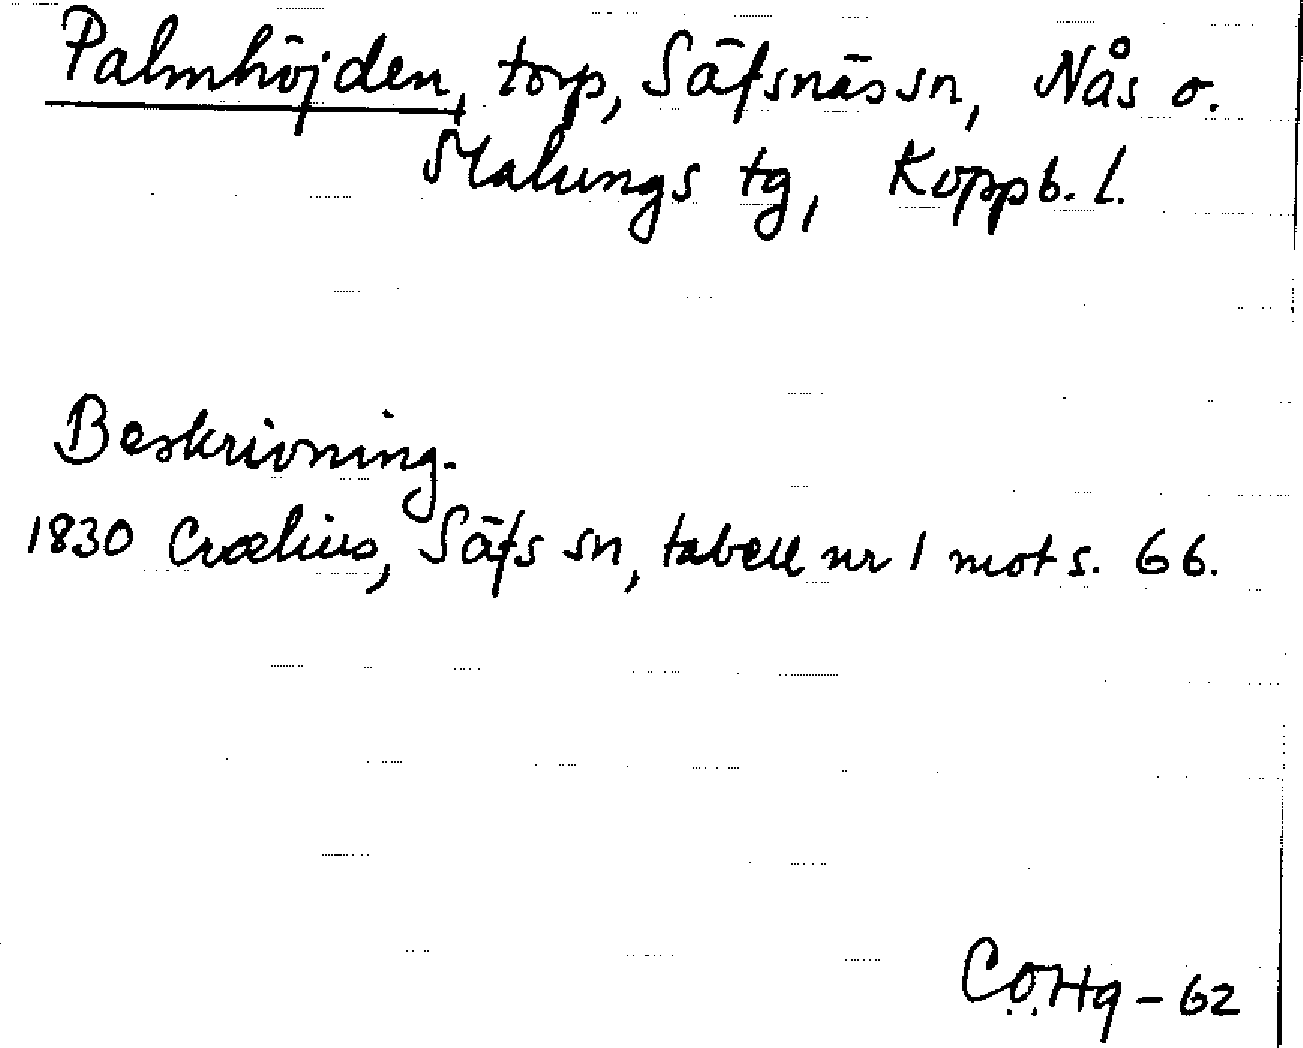 Palmhöjden, torp, Säfsnäs sn, Nås o.
Malungs tg, Koppb. l.
Beskrivning.
1830 Crælius, Säfs sn, tabell nr 1 mot s. 66.
CÖHg - 62